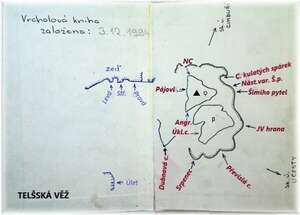 Vrcholová kniha
založena: 3.12.1994
zeď
Levá
Stř.
Pravá
Úlet
TELŠSKÁ VĚŽ
NC
C. kulatých spárek
Nást.var. Š.p.
Šimiho pytel
Pájovi
Angr.
Úkl.c.
JV hrana
Dubnová c.
Srpenec
Převislé c.